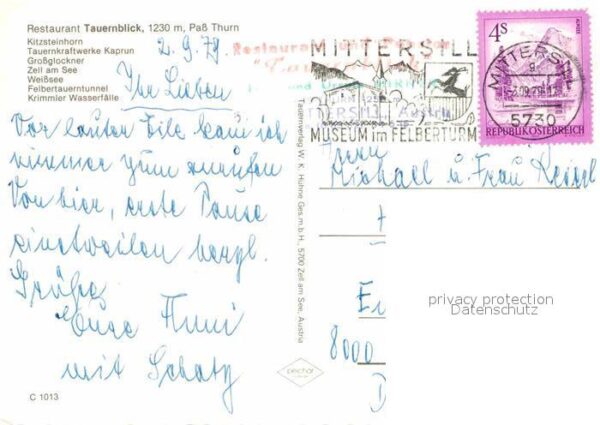 Restaurant Tauernblick, 1230 m, Paß Thurn
Kitzsteinhorn
Tauernkraftwerke Kaprun
Großglockner
Zell am See
Weißsee
Felbertauerntunnel
Krimmler Wasserfälle
2.9.79
Ihr Lieben
Vor lauter Eile kam ich
nimmer zum anrufen
Von hier, erste Pause
einstweilen herzl.
Grüße
Eure Anni
mit Schatz
C 1013
Tauernverlag W. K. Hühne Ges.m.b.H., 5700 Zell am See, Austria
Restaurant
MITTERSILL
Austria
MUSEUM im FELBERTURM
4S
REPUBLIK ÖSTERREICH
MITTERSILL
5730
Michael u. Frau
privacy protection
Datenschutz
8000
D